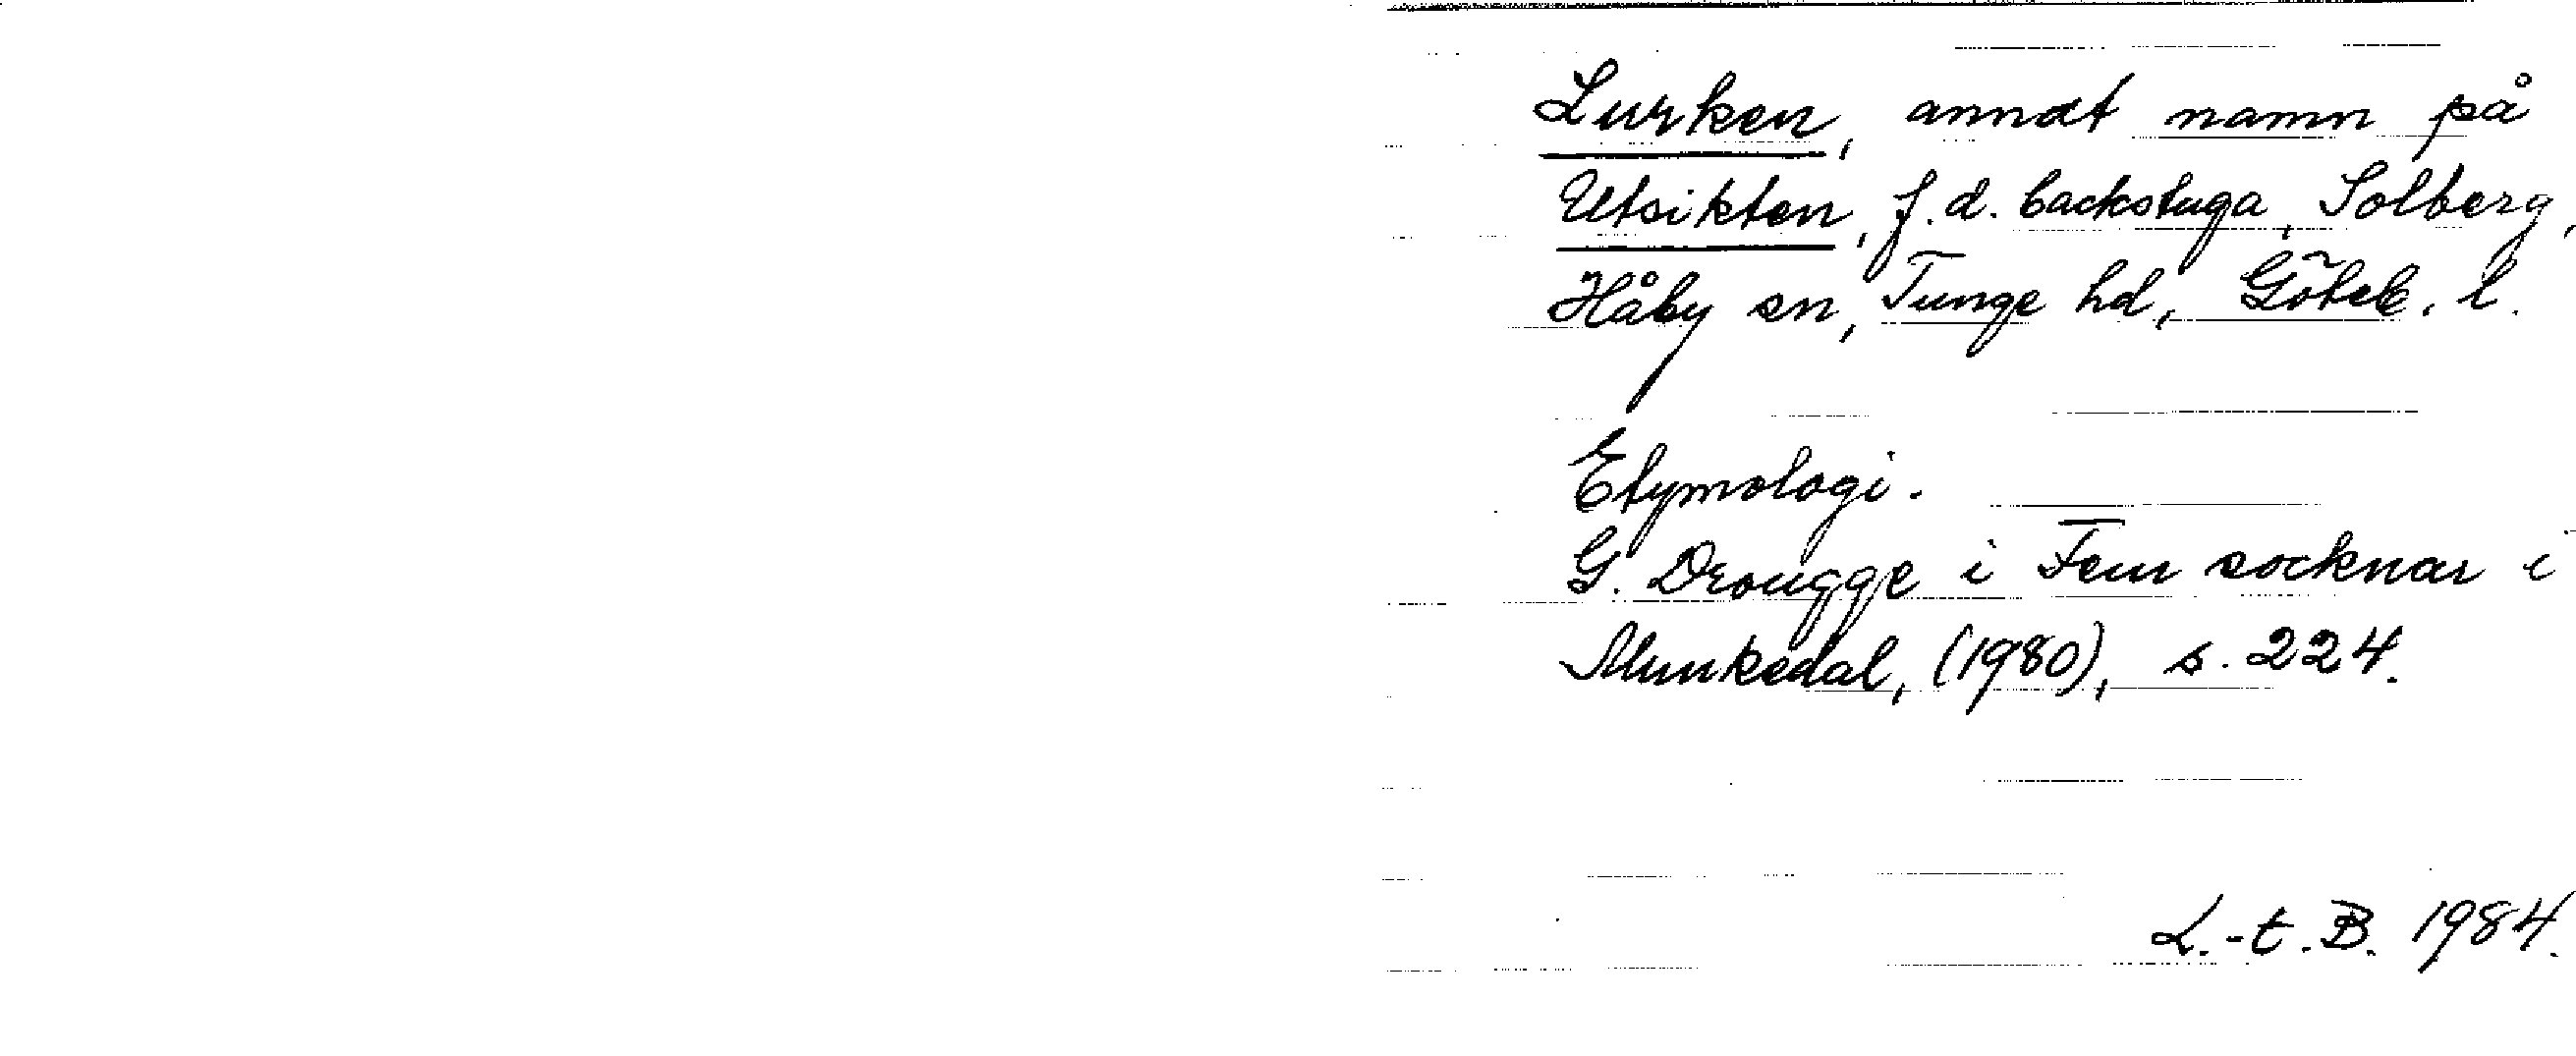 Lurken, annat namn på
Utsikten, f.d. backstuga, Solberg,
Håby sn, Tunge hd, Göteb. l.
Etymologi.
G. Drougge i Fem socknar i
Munkedal, (1980), s. 224.
L.-t. B. 1984.